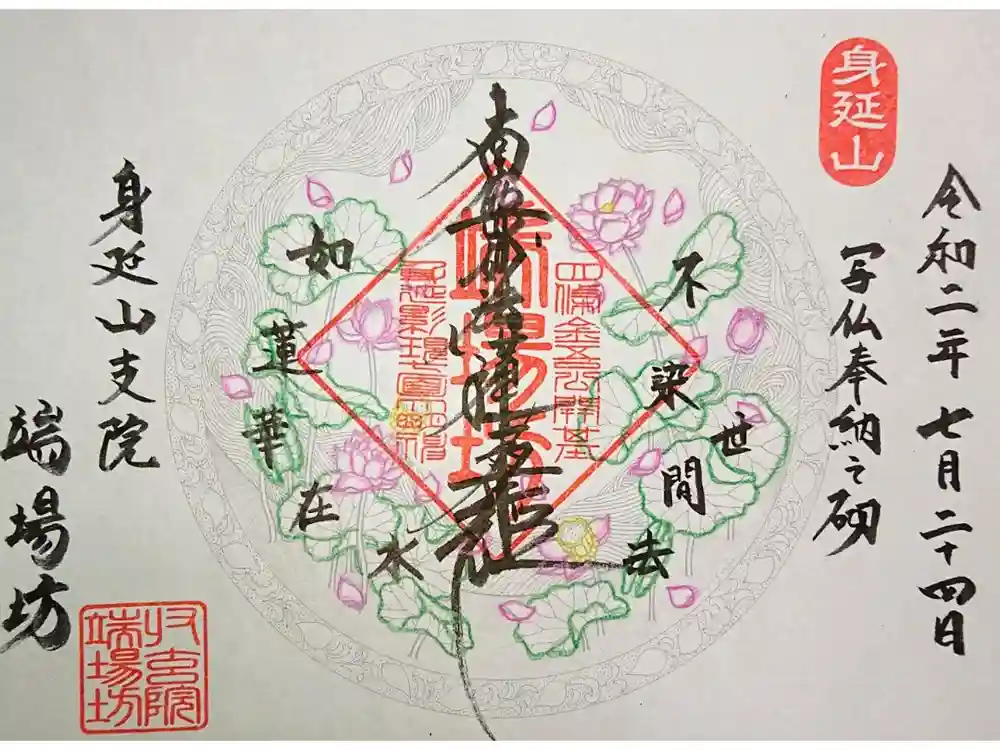 身延山
令和二年 七月二十四日
写仏奉納之砌
不染世間法
南無妙法蓮華経
四條金吾公開基
端場坊
如蓮華在水
身延山支院
端場坊
端場坊